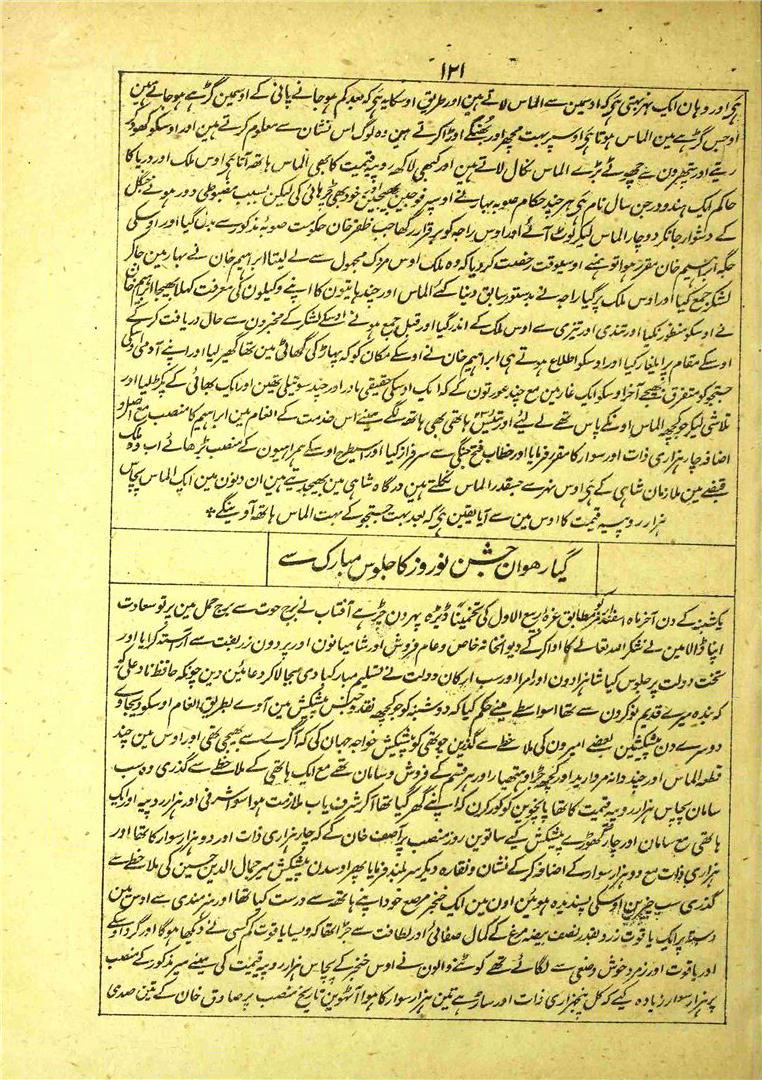 ۱۲۱
ہی اور وہان ایک نہر بہتی ہی کہ اوسمین سے الماس لاتے ہین اور طریق اوسکا یہ ہی کہ بعد کم ہوجانے پانی کے اوسمین گڑہے ہوجاتے ہین
اوجس گڑہے مین الماس ہوتا ہی اوسپر بہت مچھر اور بھنگے اوڑا کرتے ہین وہ لوگ اس نشان سے معلوم کرتے ہین اور اوسکو کھود کر
ریتے اور پتھرون سے چھوٹے بڑے الماس نکال لاتے ہین اور کبھی لاکھ روپیہ قیمت کا بھی الماس ہاتھ آتا ہی اوس ملک اور دریا کا
حاکم ایک ہندو درجن سال نام ہی ہرچند حکام صوبہ بہار نے اوسپر فوجین بھیجین اور خود بھی چڑہائی کی لیکن بسبب مضبوطی دور ہونے جنگل
کے دشوار جانکر دوچار الماس لیکر لوٹ آئے اور اوس راجہ کو برقرار رکھا جب ظفر خان حکومت صوبہ مذکور سے بدل گیا اور اوسکی
جگہ ابراہیم خان مقرر ہوا تو مینے اوسیوقت رخصت کردیا کہ وہ ملک اوس مردک مجہول سے لے لینا ابراہیم خان نے بہار مین جاکر
لشکر جمع کیا اور اوس ملک پر گیا راجہ نے بدستور سابق دنیا کئے الماس اور چند ہاتیون کا اپنے وکیلون کی معرفت کہلا بھیجا ابراہیم خان
نے اوسکو منظور نکیا اور تندی اور تیزی سے اوس ملک کے اندر گیا اور قبل جمع ہونے اوسکے لشکر کے مخبرون سے حال دریافت کرکے
اوسکے مقام پر ایلغار کیا اور اوسکو اطلاع ہوتے ہی ابراہیم خان نے اوسکے مکان کو کہ پہاڑ کی گھاٹی مین تھا گھیر لیا اور اپنے آدمی اوسکی
جستجو کو متفرق بھیجے آخر اوسکو ایک غار مین مع چند عورتون کے کہ ایک اوسکی حقیقی مادر اور چند سوتیلی تھین اور ایک بھائی کے پکڑ لیا اور
تلاشی لیکر جو کچھ الماس اونکے پاس تھے لے لیے اور تئیس ۲۳ ہاتھی بھی ہاتھ لگے مینے اس خدمت کے انعام مین ابراہیم کا منصب مع اصل و
اضافہ چار ہزاری ذات اور سوار کا مقرر فرمایا اور خطاب فتح جنگی سے سرفراز کیا اور اسیطرح اوسکے ہمراہیون کے منصب بڑھائے اب وہ ملک
قبضے مین ملازمان شاہی کے ہی اوس نہر سے جسقدر الماس نکلتے ہین درگاہ شاہی مین بھیجے جاتے ہین ان دنون مین ایک الماس پچاس
ہزار روپیہ قیمت کا اوس مین سے آیا یقین ہی کہ بعد بہت جستجو کے بہت الماس ہاتھ آوینگے *
گیارھوان جشن نوروز کا جلوس مبارک سے
یکشنبہ کے دن آخر ماہ مطابق غرۂ ربیع الاول کی تخمیناً ڈیڑہ پہر دن چڑہے آفتاب نے برج حوت سے برج حمل مین پرتو سعادت
اپنا ڈالا مین نے شکر اللہ تعالی کا ادا کرکے دیوانخانہ خاص وعام فروش اور شامیانون اور پردون زربفت سے آراستہ کرایا اور
تخت دولت پر جلوس کیا شاہزادون اور امرا اور سب ارکان دولت نے تسلیم مبارکبادی بجا لاکر دعائین دین چونکہ حافظ نادعلی گو
کہ بندہ میرے قدیم نوکرون سے تھا اسواسطے مینے حکم کیا کہ دوشنبہ کو جو کچھ نقد و جنس پیشکش مین آوے بطریق انعام اوسکو دیجاوے
دوسرے دن پیشکشین بعضے امیرون کی ملاحظے سے گذرین چوتھی کو پیشکش خواجہ جہان کی کہ آگرے سے بھیجی تھی اور اوس مین چند
قطعہ الماس اور چند دانہ مروارید اور کچھ جڑاؤ ہتھیار اور ہر قسم کے فروش و سامان تھے مع ایک ہاتھی کے ملاحظے سے گذری وہ سب
سامان پچاس ہزار روپیہ قیمت کا تھا پانچوین کو کنور کرن کہ اپنے گھر گیا تھا آکر شرف یاب ملازمت ہوا سو اشرفی اور ہزار روپیہ اور ایک
ہاتھی مع سامان اور چار گھوڑے پیشکش کیے ساتوین روز منصب پر آصف خان کے کہ چار ہزاری ذات اور دو ہزار سوار کا تھا اور
ہزاری ذات مع دو ہزار سوار کے اضافہ کرکے نشان و نقارہ دیکر سربلند فرمایا پھر اوسدن پیشکش میر جمال الدین حسین کی ملاحظے سے
گذری سب چیزین اوسکی پسندیدہ ہوئین اون مین ایک خنجر مرصع خود اپنے ہاتھ سے درست کیا تھا اور ہنرمندی سے اوس مین
دستہ پر ایک یاقوت زرد بقدر نصف بیضہ مرغ کے کمال صفائی اور لطافت سے جڑا تھا کہ ویسا یاقوت کم کسی نے دیکھا ہوگا اور گرد اوسکے
اور یاقوت اور زمرد خوش وضعی سے لگائے تھے کوتنے والون نے اوس خنجر کے پچاس ہزار روپیہ قیمت کی مینے میر مذکور کے منصب
پر ہزار سوار زیادہ کیے کہ کل پنجہزاری ذات اور ساڑہے تین ہزار سوار کا ہوا آٹھوین تاریخ منصب پر صادق خان کے تین صدی